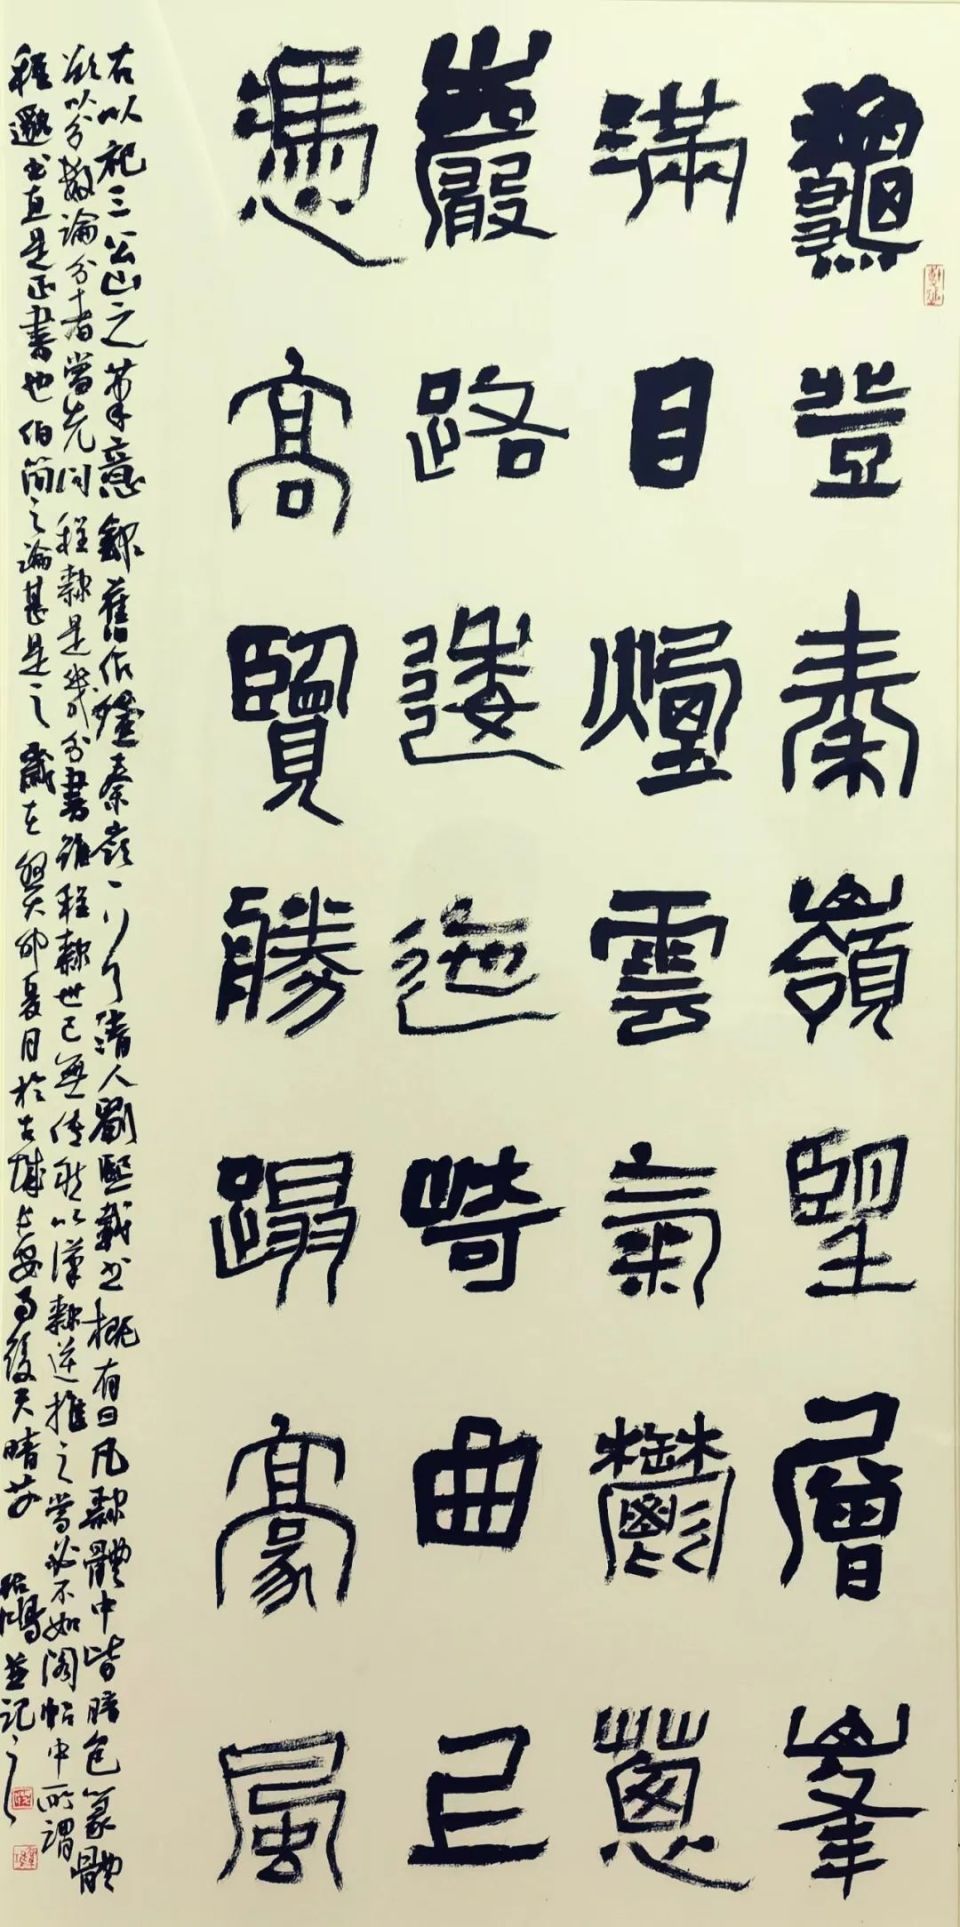 龝登秦嶺望層峯
滿目煙雲氣鬱蔥
巖路逶迤崎曲上
憑高覽勝躡豪風
右以祀三公山之筆意錄舊作登秦嶺一首清人劉熙載書概有曰凡隸體中皆暗包篆體
欲以分數論分者當先問程隸是幾分書雖程隸世已無傳然以漢隸逆推之當必不如閣帖中所謂
程邈書直是正書也伯簡之論甚是之歲在癸卯夏月於古城長安雨後天晴 並記之